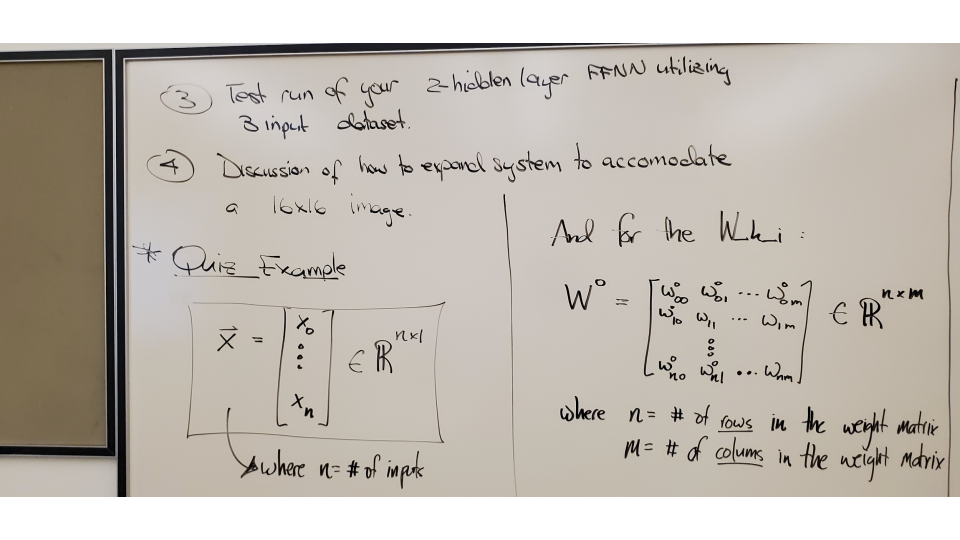 ③ Test run of your 2-hidden layer FFNN utilizing
3 input dataset.
④ Discussion of how to expand system to accomodate
a 16x16 image.
* Quiz Example
X⃗ = [x₀ ⋮ xₙ] ∈ ℝⁿˣ¹
where n= # of inputs
And for the Wki :
W⁰ = [w⁰₀₀ w⁰₀₁ ... w⁰₀ₘ
w⁰₁₀ w₁₁ ... w₁ₘ
⋮
w⁰ₙ₀ w⁰ₙ₁ ... wₙₘ] ∈ ℝⁿˣᵐ
where n= # of rows in the weight matrix
m= # of colums in the weight matrix